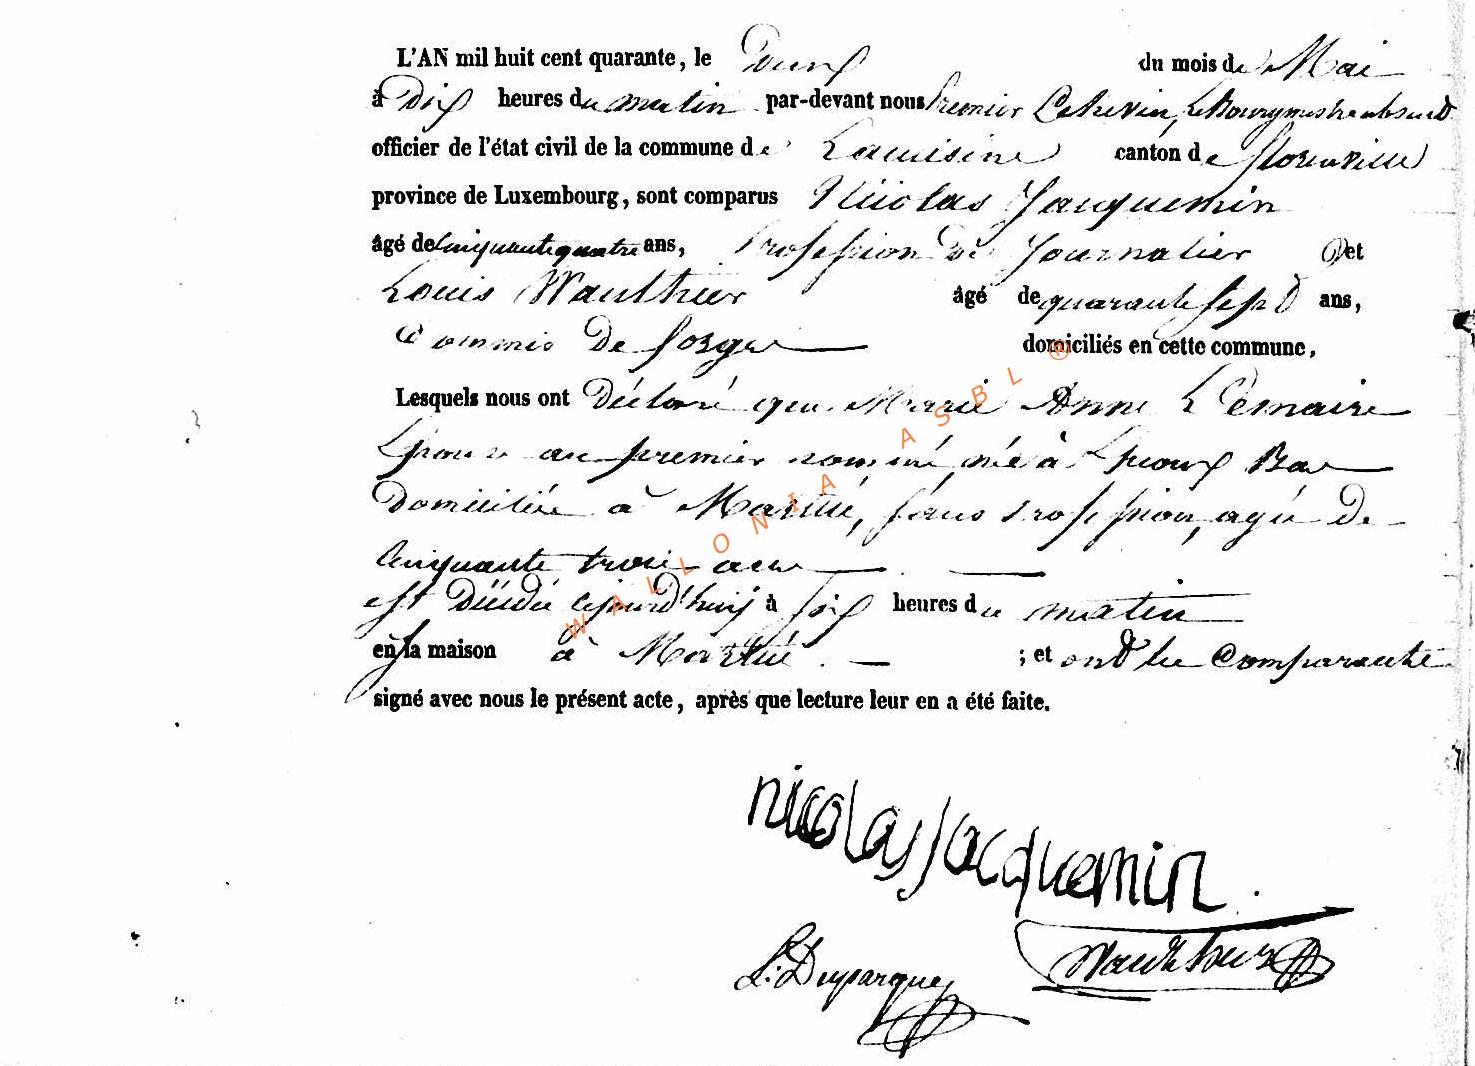 L'AN mil huit cent quarante, le Deux du mois de Mai
à Dix heures du matin par-devant nous Premier Echevin, le Bourgmestre absend
officier de l'état civil de la commune de Lacuisine canton de florenville
province de Luxembourg, sont comparus Nicolas Jacquemin
âgé de Cinquante quatre ans, Profession de Journalier et
Louis Wauthier âgé de quarante sept ans,
Commis de forge domiciliés en cette commune,
Lesquels nous ont Déclaré que Marie Anne Lemaire
Epouse au premier nommé, née à
Domiciliée à Martué, sans Profession, agée de
Cinquante trois ans
est Décédée cejourd'huy à six heures du matin
en sa maison à Martué ; et ont les Comparants
signé avec nous le présent acte, après que lecture leur en a été faite.
nicolas Jacquemin
L: Duparque Wauthier
WALLONIA ASBL ®